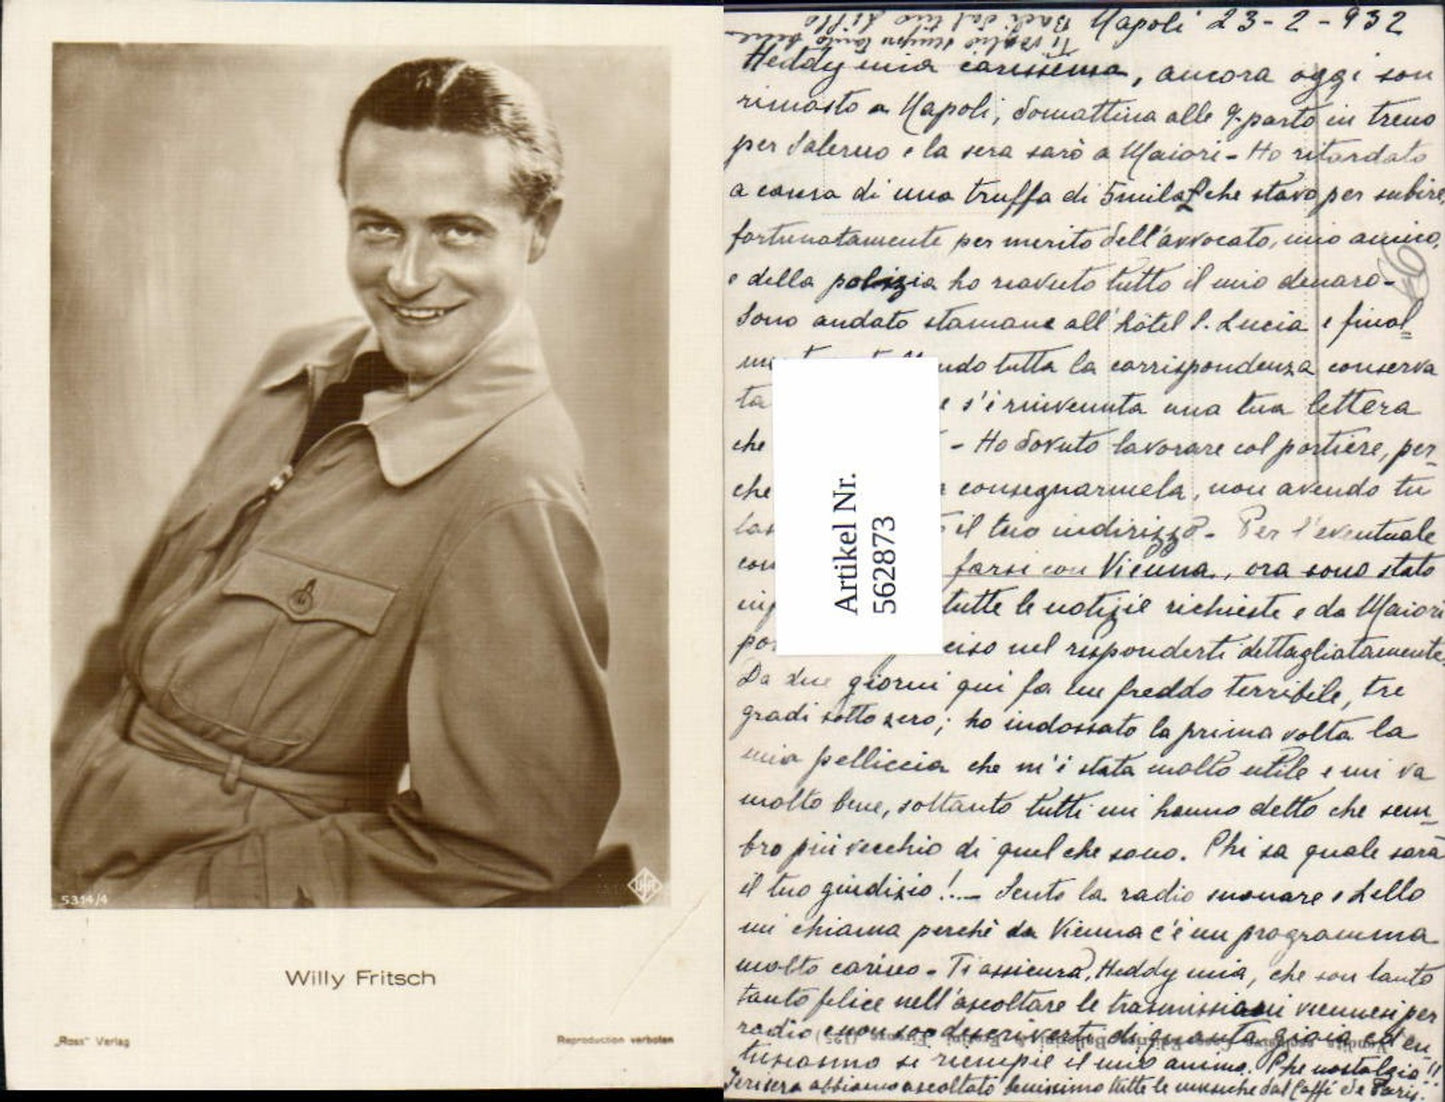 5314/4
UFA
Willy Fritsch
„Ross" Verlag
Reproduction verboten
Napoli 23-2-932
Ti voglio sempre tanto bene
Baci dal tuo
Heddy mia carissima, ancora oggi son
rimasto a Napoli, domattina alle 9 parto in treno
per Salerno e la sera sarò a Maiori - Ho ritardato
a causa di una truffa di 5mila£ che stavo per subire,
fortunatamente per merito dell'avvocato, mio amico,
e della polizia ho riavuto tutto il mio denaro-
Sono andato stamane all'hôtel S. Lucia e final
tutta la corrispondenza conserva
ta s'è rinvenuta una tua lettera
che - Ho dovuto lavorare col portiere, per
che consegnarmela, non avendo tu
il tuo indirizzo - Per l'eventuale
farsi con Vienna, ora sono stato
tutte le notizie richieste e da Maiori
nel risponderti dettagliatamente.
Da due giorni qui fa un freddo terribile, tre
gradi sotto zero; ho indossato la prima volta la
mia pelliccia che m'è stata molto utile e mi va
molto bene, soltanto tutti mi hanno detto che sem
bro più vecchio di quel che sono. Chi sa quale sarà
il tuo giudizio!... Sento la radio suonare e Lello
mi chiama perchè da Vienna c'è un programma
molto carino - Ti assicuro, Heddy mia, che son tanto
tanto felice nell'ascoltare le trasmissioni viennesi per
radio e non so descriverti di quanta gioia ed en
tusiasmo si riempie il mio animo. Che nostalgia!!
Ieri sera abbiamo ascoltato benissimo tutte le musiche dal Caffè de Paris.
Artikel Nr.
562873